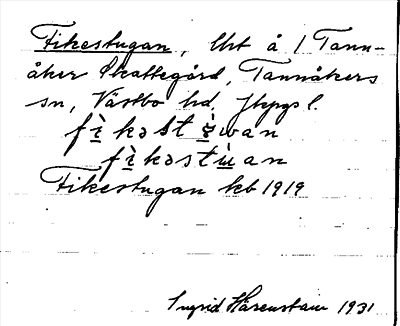 Fikestugan, lht å 1 Tann-
åker Skattegård, Tannåkers
sn, Västbo hd, Jkpgs l.
fì̱kəstò̱wan
fì̱kəstù̱an
Fikestugan kb 1919
Ingrid Härenstam 1931